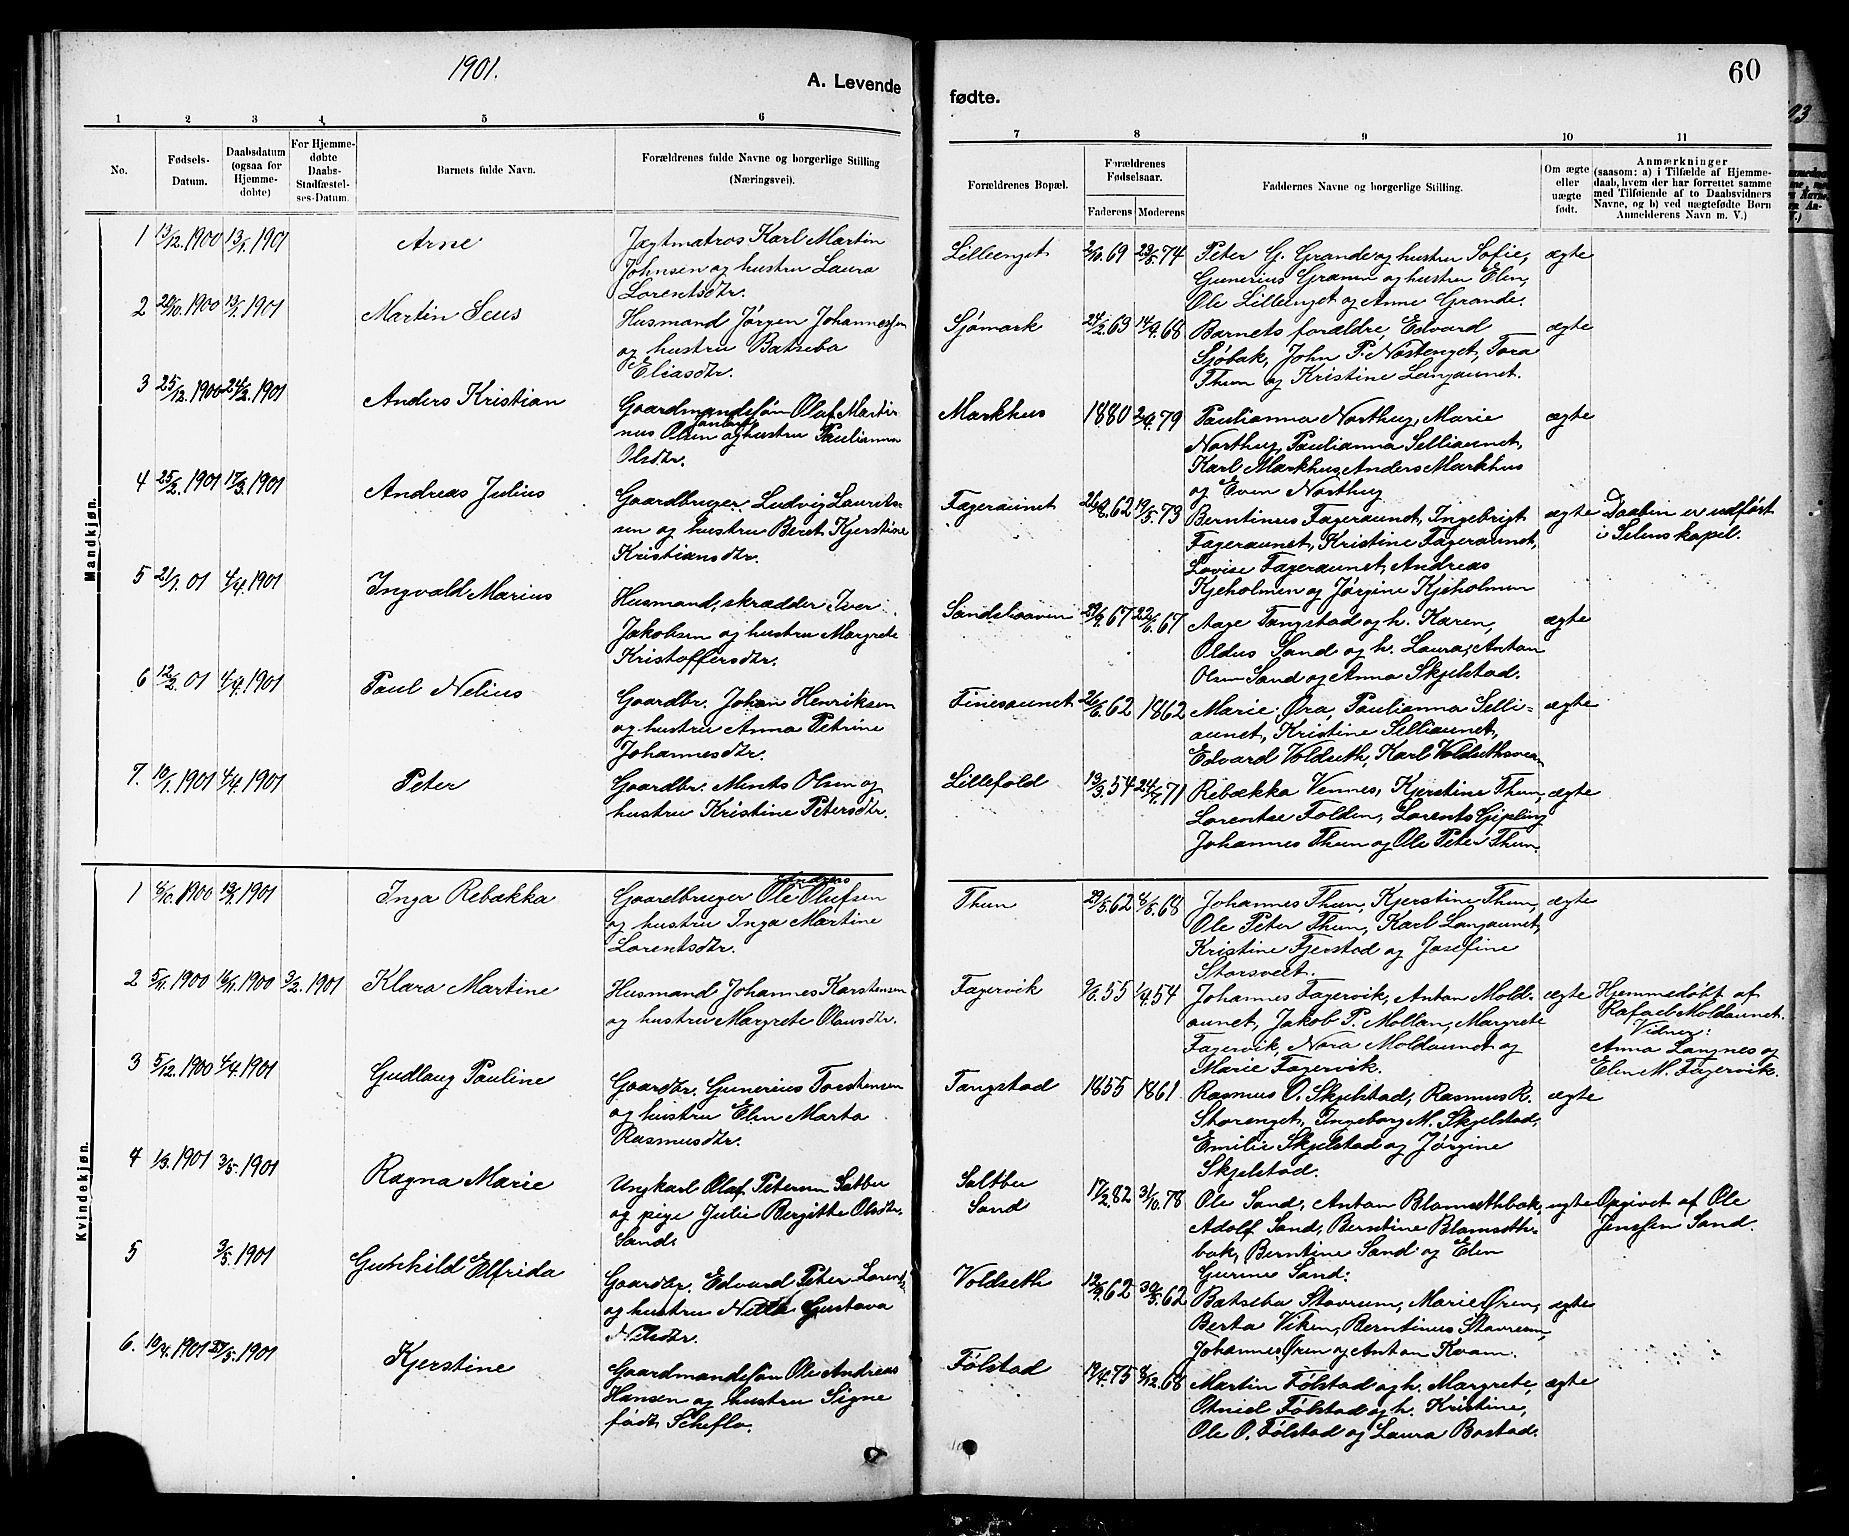 1901.
A. Levende
fødte.
60
1 2 3 4 5 6 7 8 9 10 11
No.
Fødsels-
Datum.
Daabsdatum
(ogsaa for
Hjemme-
døbte)
For Hjemme-
døbte
Daabs-
Stadfæstel-
ses-Datum.
Barnets fulde Navn.
Forældrenes fulde Navne og borgerlige Stilling
(Næringsvei).
Forældrenes Bopæl.
Forældrenes
Fødselsaar.
Faderens Moderens
Faddernes Navne og borgerlige Stilling.
Om ægte
eller
uægte
født.
Anmærkninger
(saasom: a) i Tilfælde af Hjemme-
daab, hvem der har forrettet samme
med Tilføiende af to Daabsvidners
Navne, og b) ved uægtefødte Børn
Anmelderens Navn m. V.)
Mandkjøn.
1 13/12.1900 13/1.1901 Arne
Jægtmatros Karl Martin
Johnsen og hustru Laura
Lorentsdtr.
Lilleenget 2/10.69 23/5.74
Peter G. Grande og hustru Sofie,
Gunerius Gramm og hustru Elen,
Ole Lilleenget og Anne Grande.
ægte
2 20/10.1900 13/1.1901 Martin Seus
Husmand Jørgen Johannessen
og hustru Batseba
Eliasdtr.
Sjømark 24/2.63 14/9.68
Barnets forældre, Edvard
Sjøbak, John P. Nostenget, Tora
Thun og Kristine Langaunet.
ægte
3 25/12.1900 24/2.1901 Anders Kristian
Gaardmandssøn Olaf Marti-
nus Olsen og hustru Paulianna
Olsdtr.
Markhus 1880 2/9.79
Paulianna Northug, Marie
Northug, Paulianna Selliaunet,
Karl Markhus, Anders Markhus
og Even Northug
ægte
4 25/2.1901 17/3.1901 Andreas Julius
Gaardbruger Ludvig Laurits-
sen og hustru Beret Kjerstine
Kristiansdtr.
Fageraunet 26/8.62 19/5.73
Berntinus Fageraunet, Ingebrigt
Fageraunet, Kristine Fageraunet,
Lovise Fageraunet, Andreas
Kjeholmen og Jørgine Kjeholmen
ægte
Daaben er udført
i Selens kapel.
5 21/1.01 4/4.1901 Ingvald Marius
Husmand, skrædder Iver
Jakobsen og hustru Margrete
Kristoffersdtr.
29/9.67 22/6.67
Aage Tangstad og h. Karen,
Oldus Sand og h. Laura, Anton
Olsen Sand og Anna Skjelstad.
ægte
6 12/2.01 4/4.1901 Paul Nelius
Gaardbr. Johan Henriksen
og hustru Anna Petrine
Johannesdtr.
Finesaunet 26/6.62 1862
Marie Øra, Paulianna Selli-
aunet, Kristine Selliaunet,
Edvard Voldseth, Karl Voldsethsvean
ægte
7. 10/1.1901 4/4.1901 Peter
Gaardbr. Ments Olsen og
hustru Kristine Petersdtr.
Lillefold 13/3.54 24/4.71
Rebækka Vennes, Kjerstine Thun,
Lorentse Folden, Lorents Gipling
Johannes Thun og Ole Peter Thun.
ægte
Kvindekjøn.
1 6/10.1900 13/1.1901 Inga Rebækka
Andreas
Gaardbruger Ole Olufsen
og hustru Inga Martine
Lorentsdtr.
Thun 29/5.62 8/5.68
Johannes Thun, Kjerstine Thun,
Ole Peter Thun, Karl Langaunet,
Kristine Fjerstad og Josefine
Storsveet.
ægte
2 5/11.1900 16/11.1900 3/2.1901 Klara Martine
Husmand Johannes Karstensen
og hustru Margrete Olausdtr.
Fagervik 9/6.55 1/4.54
Johannes Fagervik, Anton Mold-
aunet, Jakob P. Mollan, Margrete
Fagervik, Nora Moldaunet og
Marie Fagervik.
ægte
Hjemmedøbt af
Rafael Moldaunet.
Vidner:
Anna Langnes og
Elen M. Fagervik.
3 5/12.1900 4/4.1901 Gudlaug Pauline
Gaardbr. Gunerius Torstensen
og hustru Elen Marta
Rasmusdtr.
Tangstad 1855 1861
Rasmus O. Skjelstad, Rasmus R.
Storenget, Ingeborg M. Skjelstad,
Emilie Skjelstad og Jørgine
Skjelstad.
ægte
4 1/3.1901 3/5.1901 Ragna Marie
Ungkarl Olaf Petersen Saltbu
og pige Julie Bergitte Olsdtr.
Sand.
Saltbu
Sand
17/2.82 31/10.78
Ole Sand, Anton Blamsethbak,
Adolf Sand, Berntine Blamseth-
bak, Berntine Sand og Elen
Gurine Sand.
uægte
Opgivet af Ole
Jenssen Sand.
5 3/5.1901 Gunhild Elfrida
Gaardbr. Edvard Peter Lorents
og hustru Nella Gustava
Nilsdtr.
Voldseth 12/9.62 30/5.62
Batseba Stavrum, Marie Øren,
Berta Viken, Berntinus Stavrum,
Johannes Øren og Anton Kvam.
ægte
6. 10/4.1901 27/5.1901 Kjerstine
Gaardmandssøn Ole Andreas
Hansen og hustru Signe
født Scheflo.
Følstad 19/4.75 8/12.68
Martin Følstad og h. Margrete,
Otniel Følstad og h. Kristine,
Ole O. Følstad og Laura Bostad.
ægte